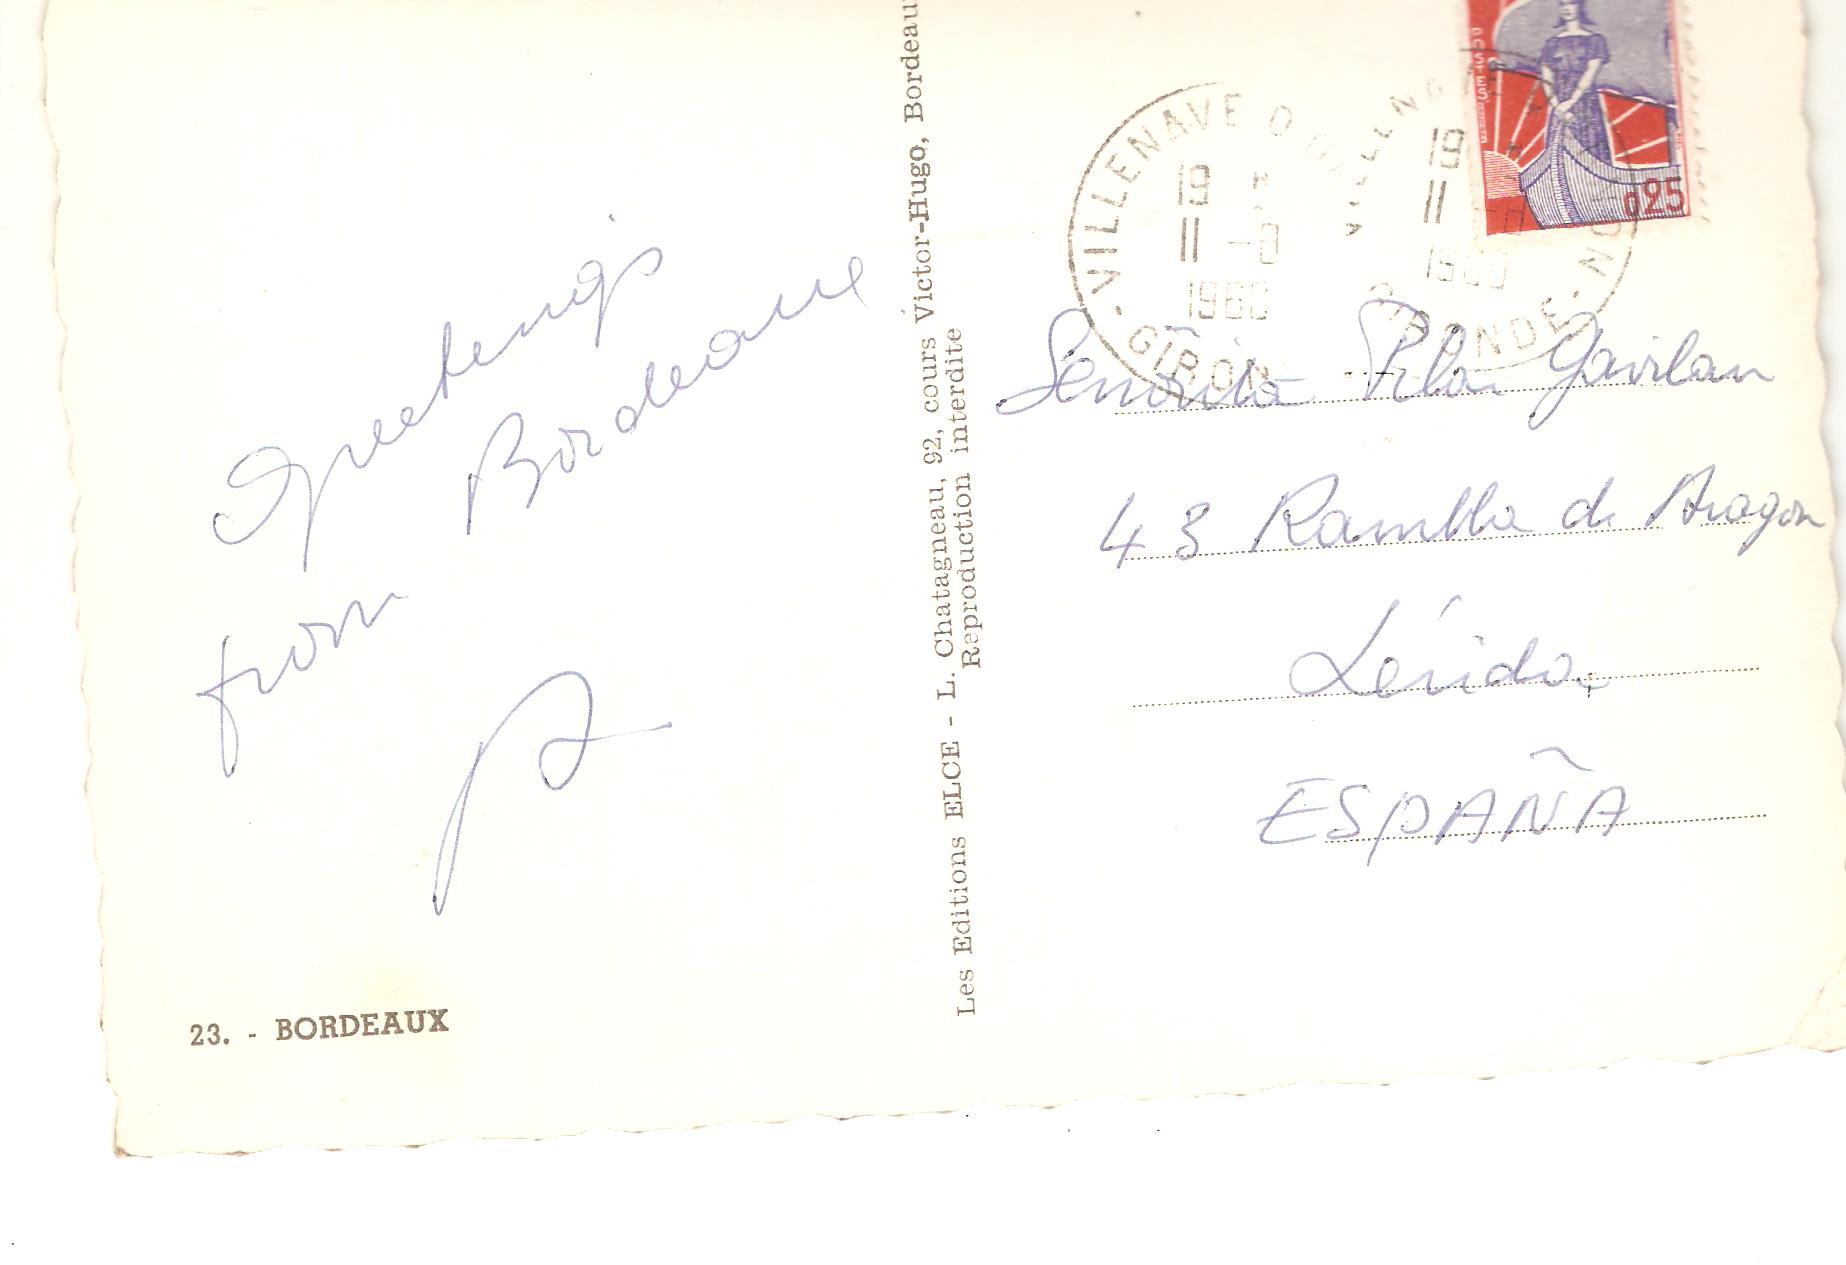 Greetings
from Bordeaux
23. - BORDEAUX
Les Editions ELCE - L. Chatagneau, 92, cours Victor-Hugo, Bordeau
Reproduction interdite
VILLENAVE D
19
11 -8
1960
GIRON
19
11
1960
GIRONDE
POSTES
0,25
Señorita Pilar Gavilan
43 Rambla de Aragon
Lérida
ESPAÑA